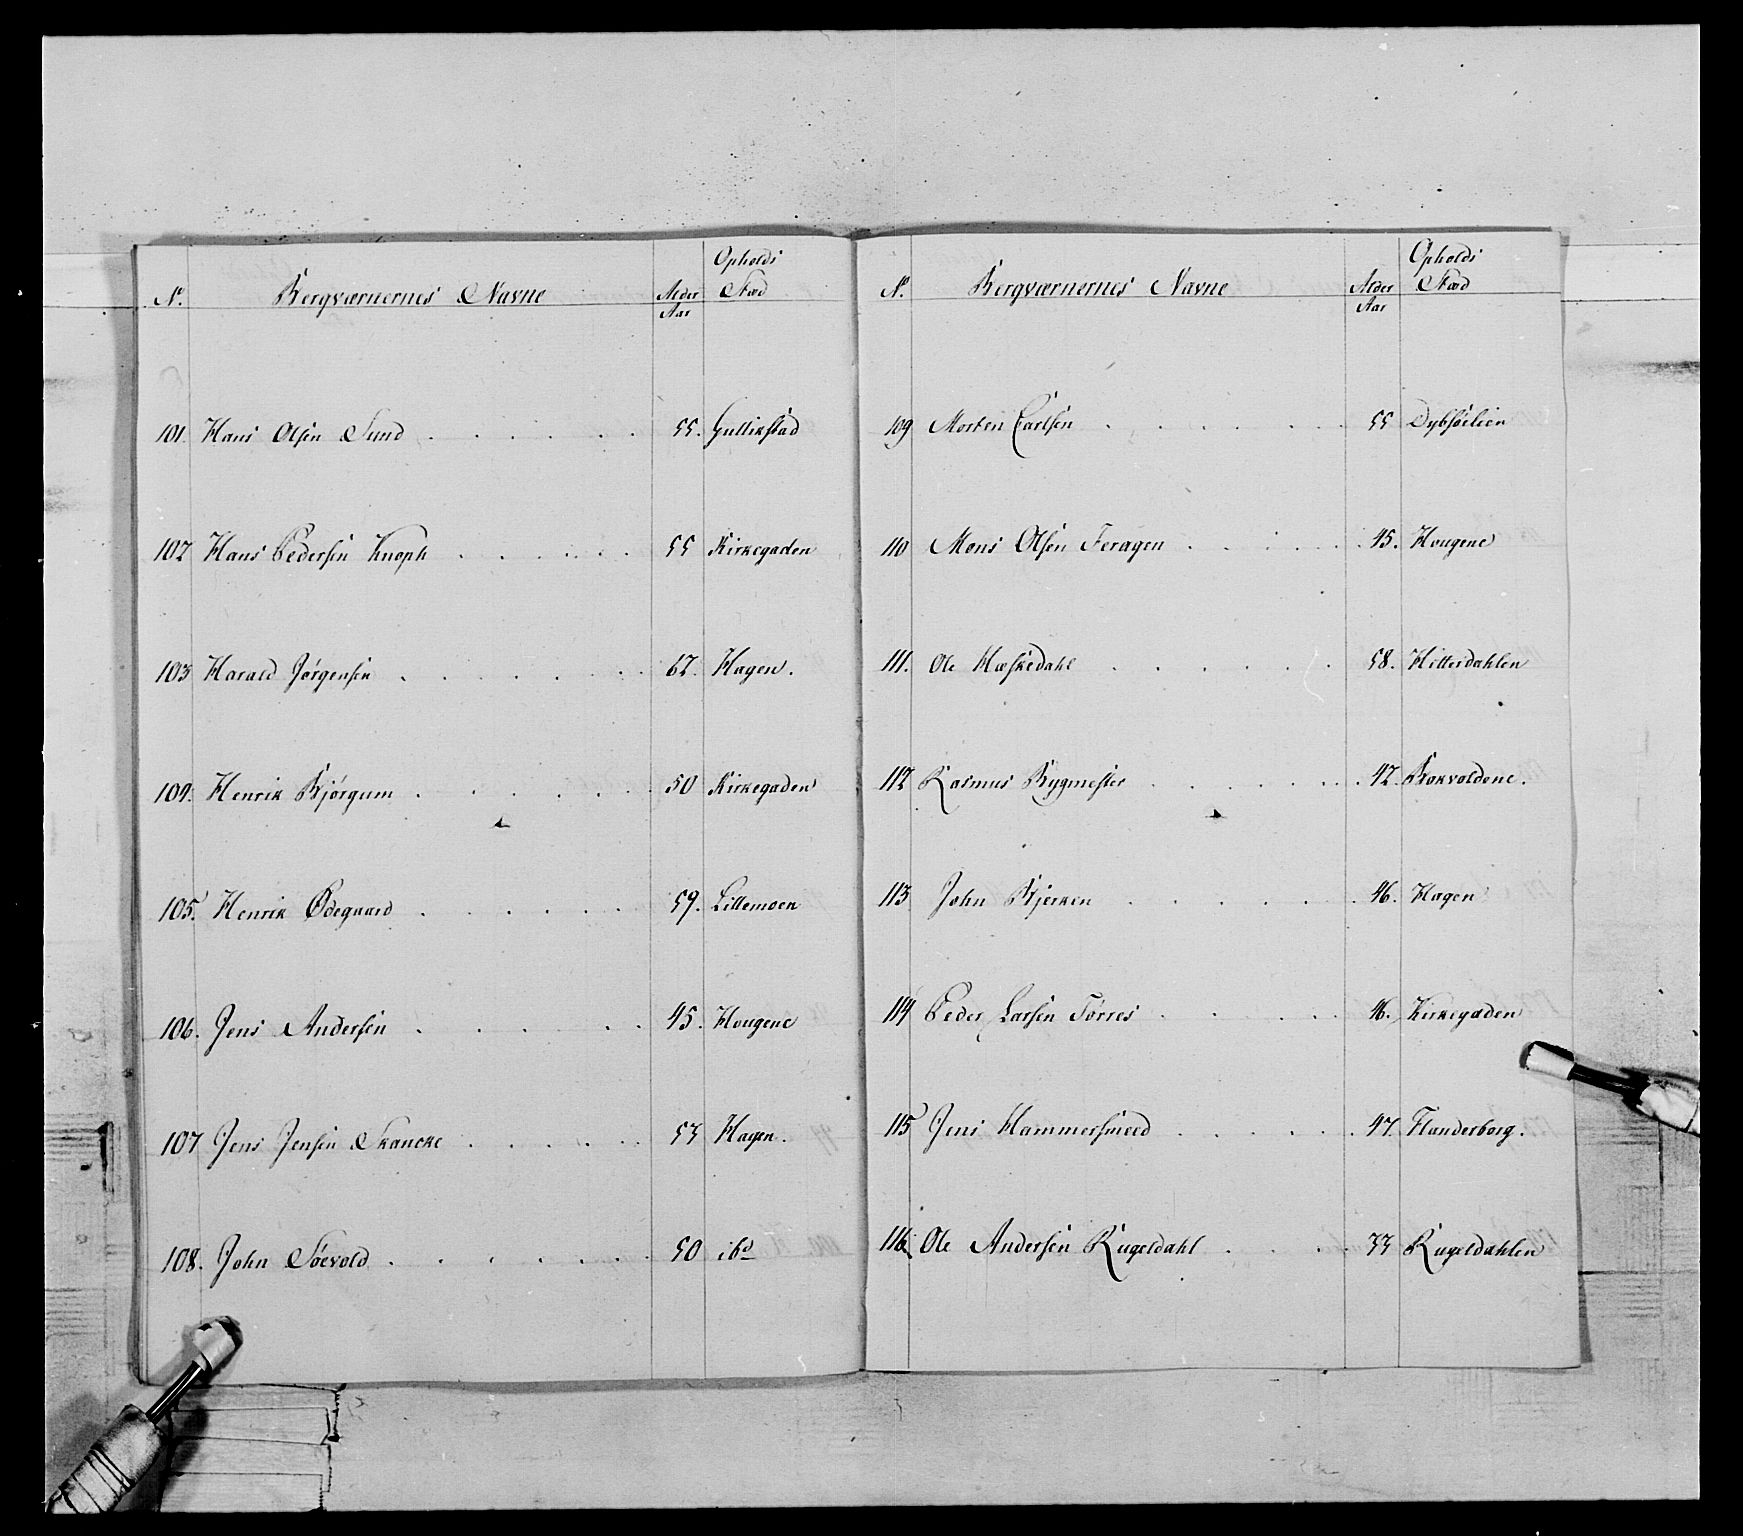 Nº. Bergværnernes Navne Alder Aar Opholds Stæd
101. Hans Olsen Sund 55. Gullikstad
102 Hans Pedersen Knoph 55 Kirkegaden
103 Harald Jørgensen 62. Hagen.
104. Henrik Bjørgum 50 Kirkegaden
105. Henrik Ødegaard 59. Lillemoen
106. Jens Andersen 45. Hougene
107 Jens Jensen Skancke 53 Hagen.
108. John Søevold 50 ibd
Nº. Bergværnernes Navne Alder Aar Opholds Stæd
109 Morten Carlsen 55 Dybsøelien
110 Mons Olsen Feragen 45. Hougene
111. Ole Hæskedahl 58. Hitterdahlen
112 Rasmus Bygmester 42. Bokvoldene.
113 John Bjerken 46. Hagen
114 Peder Larsen Tørres 46. Kirkegaden
115 Jens Hammersmeed 47. Flanderborg.
116. Ole Andersen Rugeldahl 33 Rugeldahlen